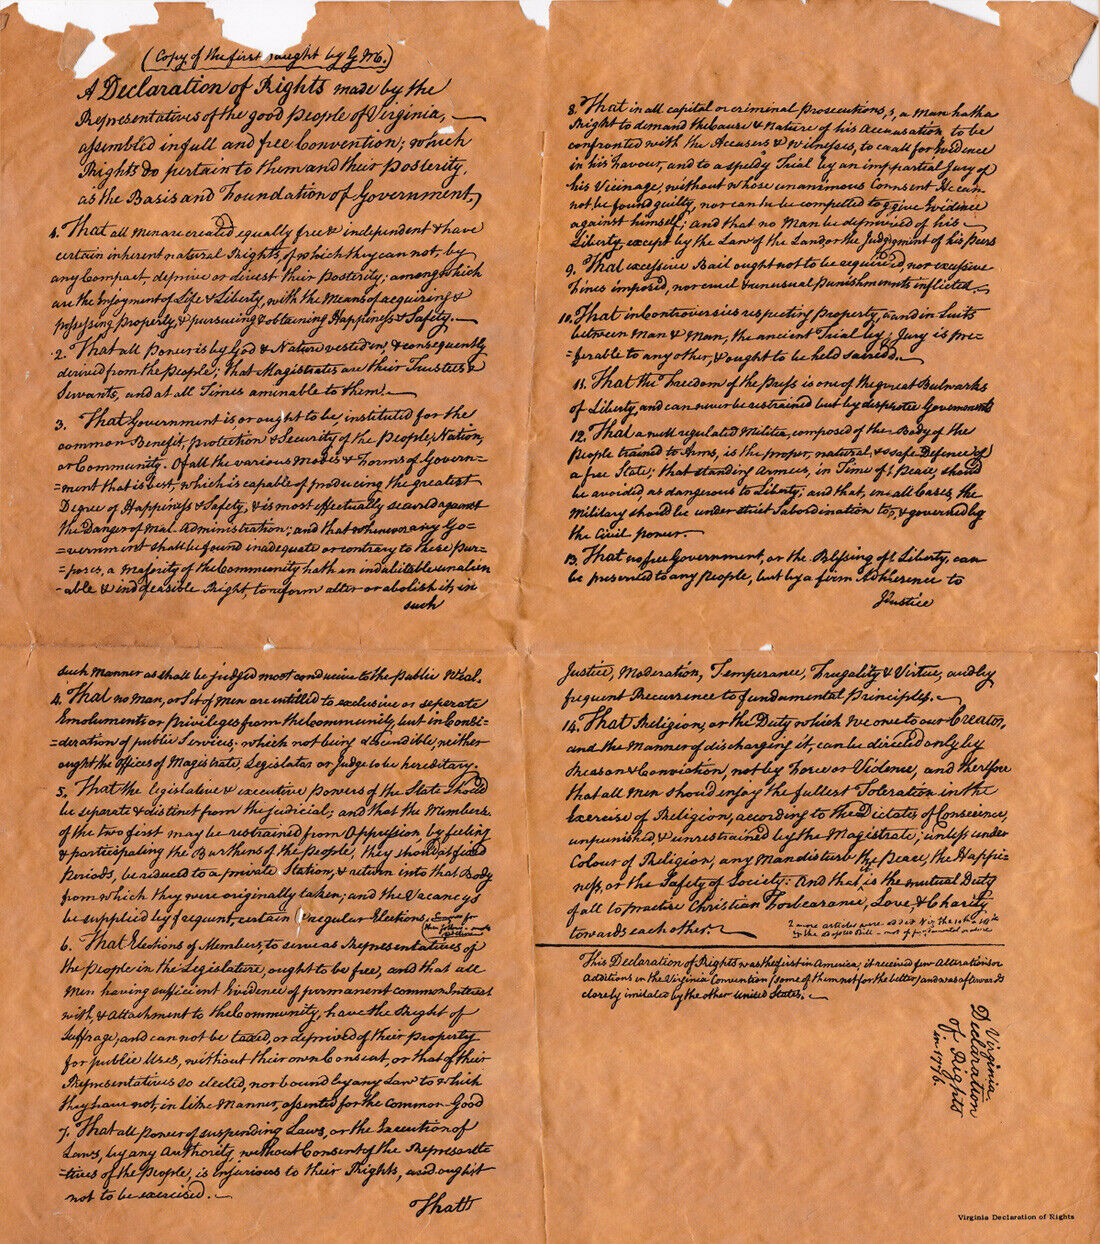 (Copy of the first aught by G M.)
A Declaration of Rights made by the
Representatives of the good people of Virginia,
assembled in full and free Convention; which
Rights do pertain to them and their Posterity,
as the Basis and Foundation of Government,
1. That all Men are created equally free & independent & have
certain inherent natural Rights, of which they can not, by
any Compact, deprive or divest their Posterity; among which
are the Enjoyment of Life & Liberty, with the Means of acquiring &
possessing Property, & pursueing & obtaining Happiness & Safety.
2. That all Power is by God & Nature vested in, & consequently
derived from the People; that Magistrates are their Trustees &
Servants, and at all Times amenable to them.
3. That Government is or ought to be instituted for the
common Benefit, protection & Security of the People, Nation,
or Community. Of all the various Modes & Forms of Govern=
=ment that is best, which is capable of producing the greatest
Degree of Happiness & Safety, & is most effectually secured against
the Danger of Mal-Administration; and that whenever any Go=
=vernment shall be found inadequate or contrary to these Pur=
=poses, a Majority of the Community hath an indubitable unalien
-able & indefeasible Right, to reform alter or abolish it, in
such
such Manner as shall be judged most conducive to the Public Weal.
4. That no Man, or Set of Men are entitled to exclusive or separate
Emoluments or Privileges from the Community, but in Consi=
=deration of public Services; which not being descendible, neither
ought the Offices of Magistrate, Legislator or Judge to be hereditary.
5. That the legislative & executive Powers of the State should
be separate & distinct from the judicial; and that the Members
of the two first may be restrained from Oppression by feeling
& participating the Burthens of the people, they should at fixed
Periods, be reduced to a private Station, & return into that Body
from which they were originally taken; and the Vacancys
be supplied by frequent, certain & regular Elections.
6. That Elections of Members, to serve as Representatives of
the people in the Legislature, ought to be free, and that all
Men having sufficient Evidence of permanent common Interest
with, & attachment to the Community, have the Right of
Suffrage, and can not be taxed, or deprived of their Property
for public Uses, without their own Consent, or that of their
Representatives so elected, nor bound by any Law to which
they have not, in like Manner, assented for the common Good
7. That all power of suspending Laws, or the Execution of
Laws, by any Authority, without Consent of the Representa
=tives of the People, is injurious to their Rights, and ought
not to be exercised.
That
8. That in all capital or criminal Prosecutions, a Man hath a
Right to demand the Cause & Nature of his Accusation, to be
confronted with the Accusers & Witnesses, to call for Evidence
in his Favour, and to a speedy Trial by an impartial Jury of
his Vicinage, without whose unanimous Consent He can
not be found guilty, nor can he be compelled to give Evidence
against himself; and that no Man be deprived of his
Liberty, except by the Law of the Land, or the Judgment of his Peers
9. That excessive Bail ought not to be required, nor excessive
Fines imposed, nor cruel & unusual Punishments inflicted.
10. That in Controversies respecting Property, and in Suits
between Man & Man, the ancient Trial by Jury is pre=
=ferable to any other, & ought to be held sacred.
11. That the Freedom of the Press is one of the great Bulwarks
of Liberty, and can never be restrained but by despotic Governments
12. That a well regulated Militia, composed of the Body of the
People trained to Arms, is the proper, natural, & safe Defence of
a free State; that standing Armies, in Time of Peace, should
be avoided, as dangerous to Liberty; and that, in all Cases, the
Military should be under strict Subordination to, & governed by
the Civil power.
13. That no free Government, or the Blessing of Liberty, can
be preserved to any People, but by a firm Adherence to
Justice
Justice, Moderation, Temperance, Frugality & Virtue, and by
frequent Recurrence to fundamental Principles.
14. That Religion, or the Duty which We owe to our Creator,
and the Manner of discharging it, can be directed only by
Reason & Conviction, not by Force or Violence, and therefore
that all Men should enjoy the fullest Toleration in the
Exercise of Religion, according to the Dictates of Conscience,
unpunished, & unrestrained by the Magistrate; unless under
Colour of Religion, any Man disturb the Peace, the Happi=
ness, or the Safety of Society: And that it is the mutual Duty
of all to practise Christian Forbearance, Love & Charity
towards each other.
2 more articles were added
This Declaration of Rights was the first in America; it received few Alterations or
Additions in the Virginia Convention (some of them not for the better) and was afterwards
closely imitated by the other United States.
Virginia
Declaration
of Rights
in 1776.
Virginia Declaration of Rights